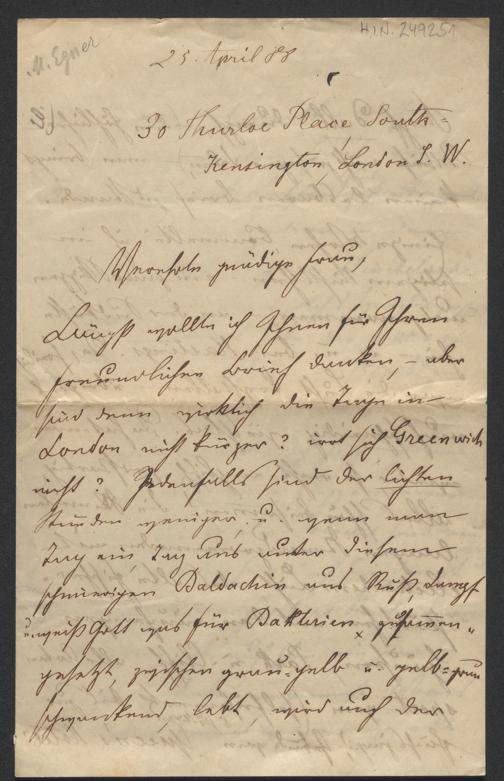 M. Egner
H.I.N. 249251
25. April 88
30 Thurloe Place, South-
Kensington, London S. W.
Verehrte gnädige Frau,
Längst wollte ich Ihnen für Ihren
freundlichen Brief danken, – aber
sind denn wirklich die Tage in
London nicht kürzer? irrt sich Greenwich
nicht? Jedenfalls sind der lichten
Stunden weniger, u. wenn man
Tag ein, Tag aus unter diesem
schmierigen Baldachin aus Ruß, Dampf
u. weiß Gott was für Bakterien zusammen-
gesetzt, zwischen grau-gelb u. gelb-grau
schwankend, lebt, wird auch der